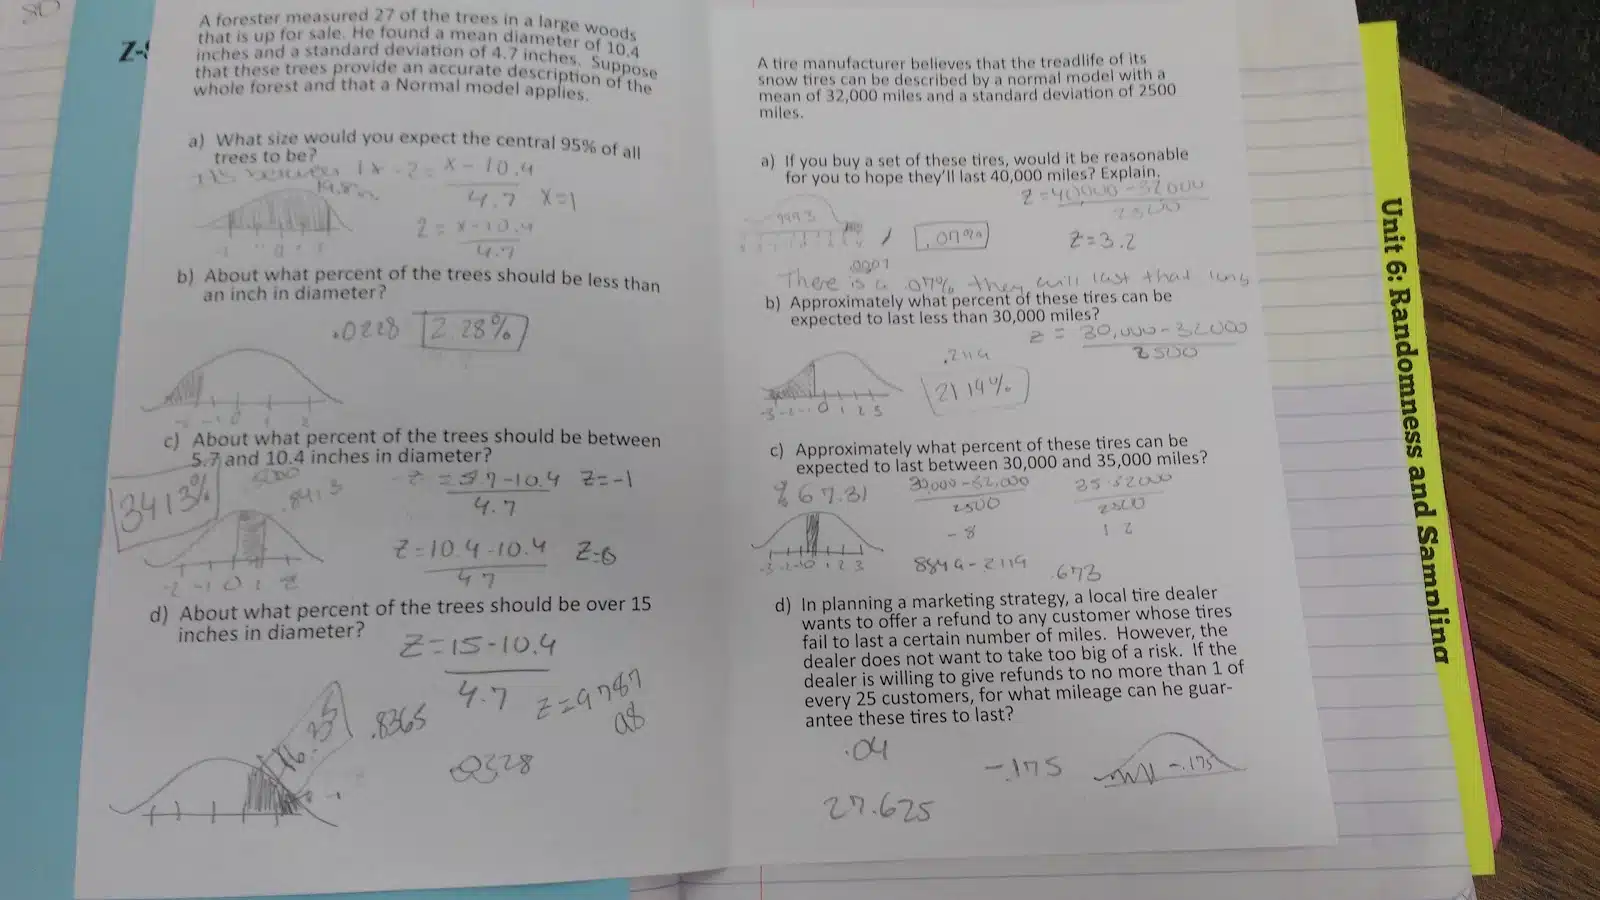 80
Z-S
A forester measured 27 of the trees in a large woods
that is up for sale. He found a mean diameter of 10.4
inches and a standard deviation of 4.7 inches. Suppose
that these trees provide an accurate description of the
whole forest and that a Normal model applies.
a) What size would you expect the central 95% of all
trees to be?
its between 1 x -2 = x - 10.4
19.8in 4.7 x=1
2 = x-10.4
4.7
b) About what percent of the trees should be less than
an inch in diameter?
.0228 2.28%
c) About what percent of the trees should be between
5.7 and 10.4 inches in diameter?
3413% .8413 z = 5.7-10.4 z=-1
4.7
z=10.4-10.4 z=0
4.7
-2 -1 0 1 2
d) About what percent of the trees should be over 15
inches in diameter?
z=15-10.4
4.7 z=9787
.8365 98
A tire manufacturer believes that the treadlife of its
snow tires can be described by a normal model with a
mean of 32,000 miles and a standard deviation of 2500
miles.
a) If you buy a set of these tires, would it be reasonable
for you to hope they'll last 40,000 miles? Explain.
z=40,000-32000
2500
.9993 .07% z=3.2
.0007
There is a .07% they will last that long
b) Approximately what percent of these tires can be
expected to last less than 30,000 miles?
z = 30,000-32000
2500
.2119
2119%
-3 -2 -1 0 1 2 3
c) Approximately what percent of these tires can be
expected to last between 30,000 and 35,000 miles?
% 67.31 30,000-32,000 35-32000
2500 2500
-8 1 2
-3 -2 -1 0 1 2 3 8849-2119 .673
d) In planning a marketing strategy, a local tire dealer
wants to offer a refund to any customer whose tires
fail to last a certain number of miles. However, the
dealer does not want to take too big of a risk. If the
dealer is willing to give refunds to no more than 1 of
every 25 customers, for what mileage can he guar-
antee these tires to last?
.04
-.175 -.175
27.625
Unit 6: Randomness and Sampling